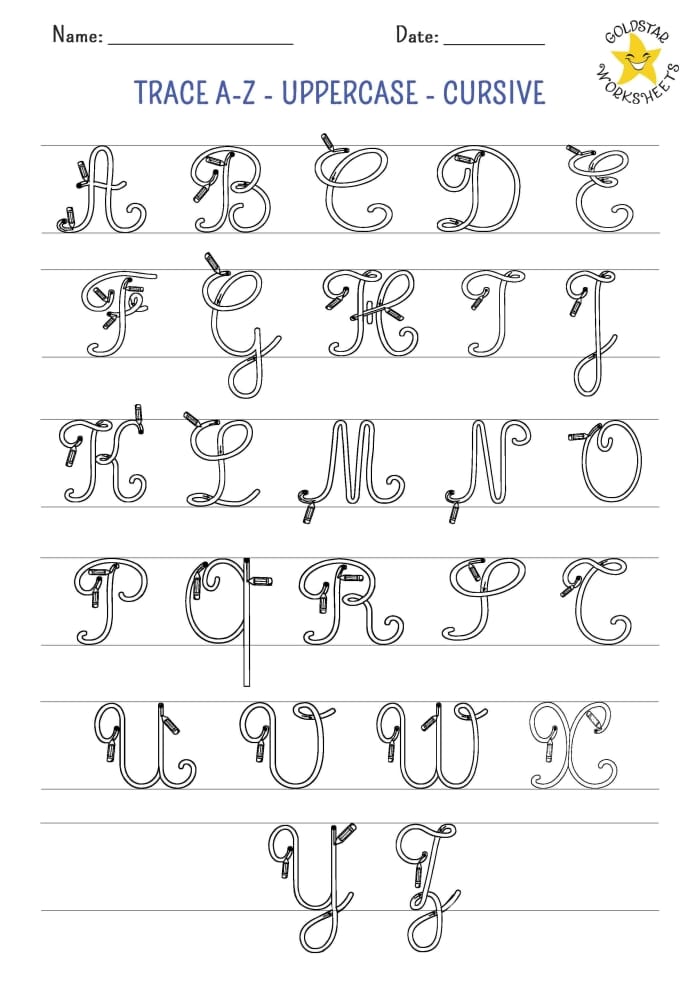 Name: ____________ Date: ____________
GOLDSTAR
WORKSHEETS
TRACE A-Z - UPPERCASE - CURSIVE
A B C D E
F G H I J
K L M N O
P Q R S T
U V W X
Y Z